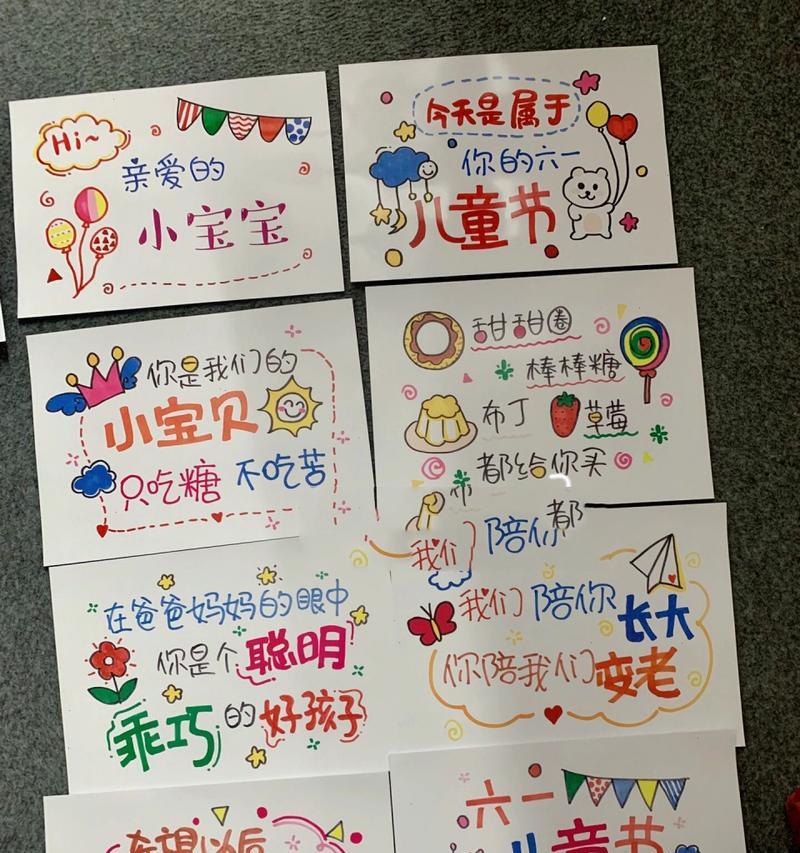 Hi~
亲爱的
小宝宝
今天是属于
你的六一
儿童节
你是我们的
小宝贝
只吃糖 不吃苦
甜甜圈
棒棒糖
布丁 草莓
都给你买
布
都
我们 陪你
在爸爸妈妈的眼中
你是个聪明
乖巧的好孩子
我们陪你长大
你陪我们变老
希望以后
六一
儿童节